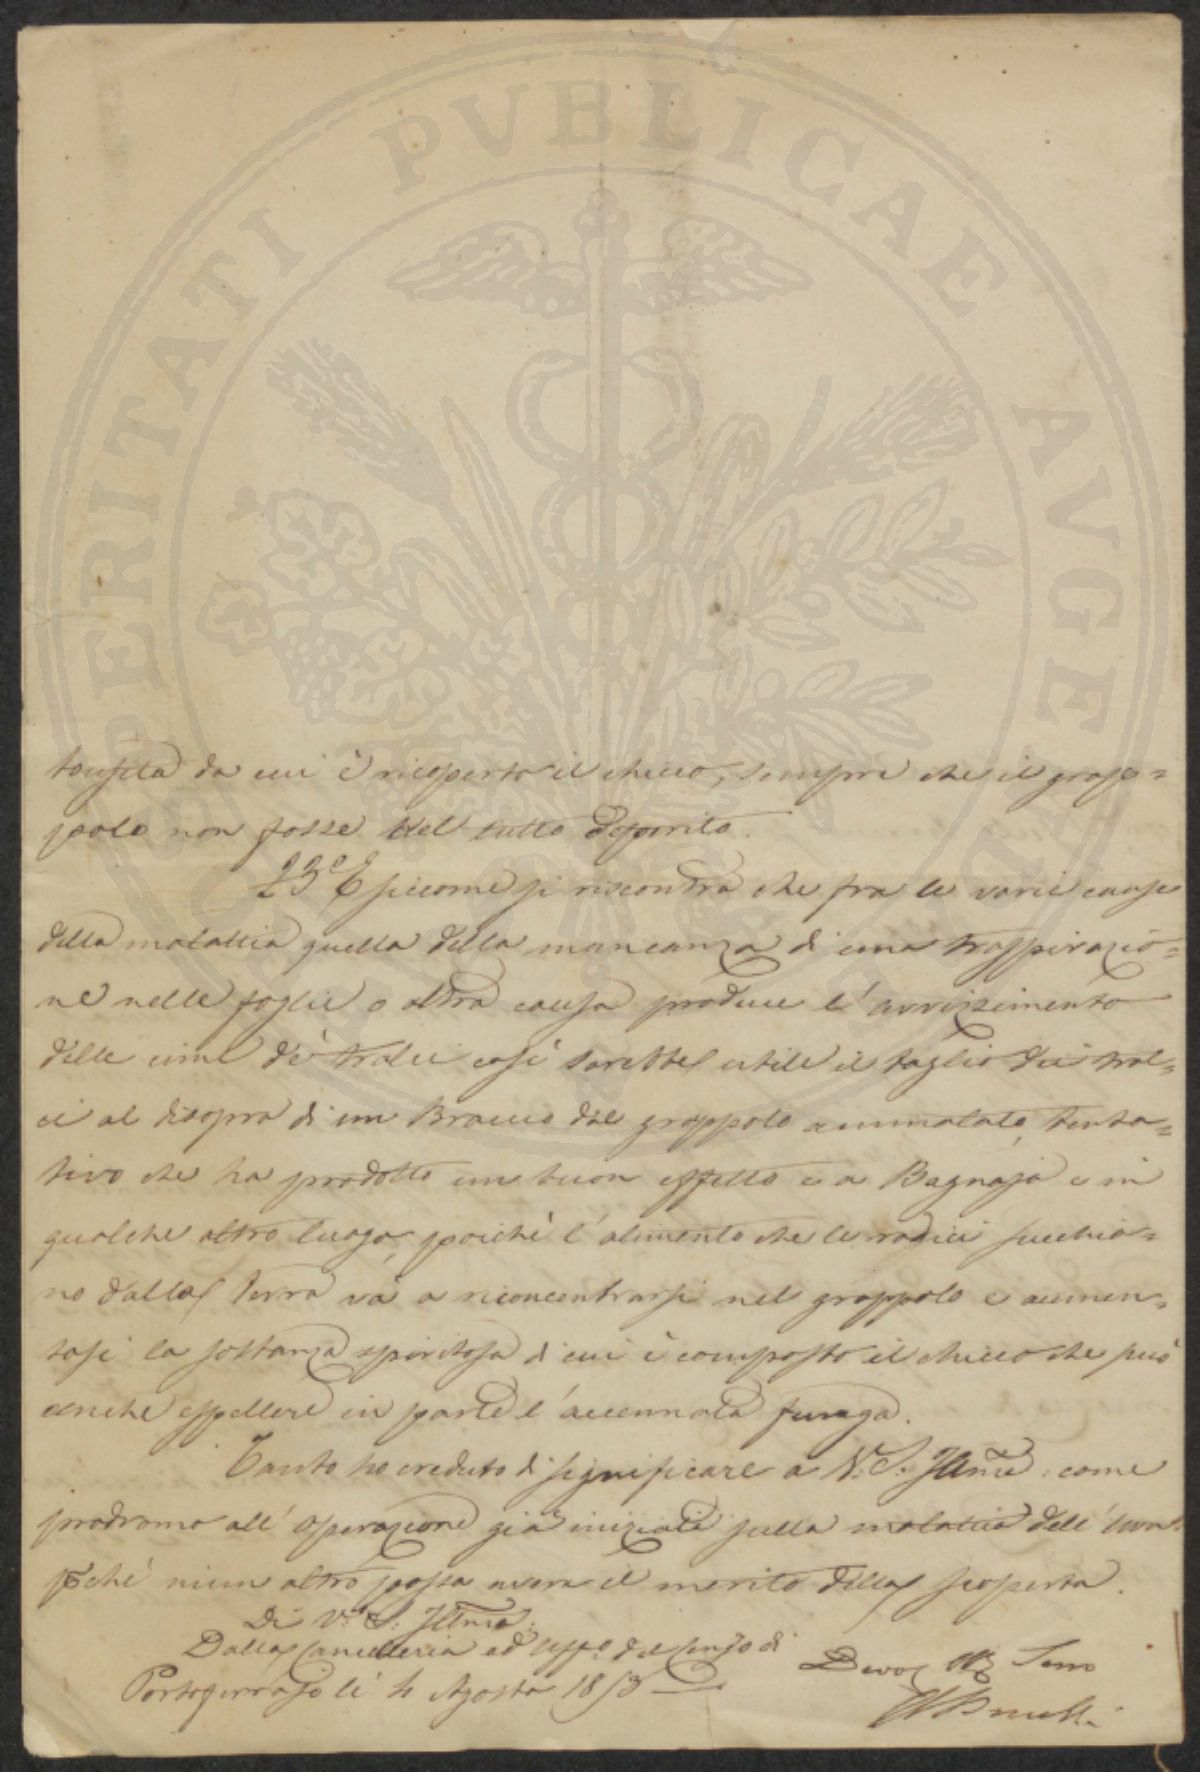 PROSPERITATI PVBLICAE AVGENDAE
da cui è ricoperto il chicco, sempre che il grap=
polo non fosse del tutto deperito.
23° E siccome si riscontra che fra le varie cause
della malattia quella della mancanza di una traspirazio=
ne nelle foglie o altra causa produce l'avvizzimento
delle cime de' tralci così sarebbe utile il taglio dei tral=
ci al disopra di un Braccio dal grappolo ammalato, tenta=
tivo che ha prodotto un buon effetto e a Bagnaja e in
qualche altro luogo, poichè l'alimento che le radici succhia=
no dalla terra và a riconcentrarsi nel grappolo e aumen=
tasi la sostanza spiritosa di cui è composto il chicco che può
anche espellere in parte l'accennata funga.
Tanto ho creduto di significare a V.S. Illma: come
prodromo all'operazione già iniziata sulla malattia dell'Uva
pchè niun altro possa avere il merito della scoperta.
Di V.S. Illma.
Dalla Cancelleria ed Uffo. del Censo di
Portoferrajo li 4 Agosto 1853
Devot Obb Servo